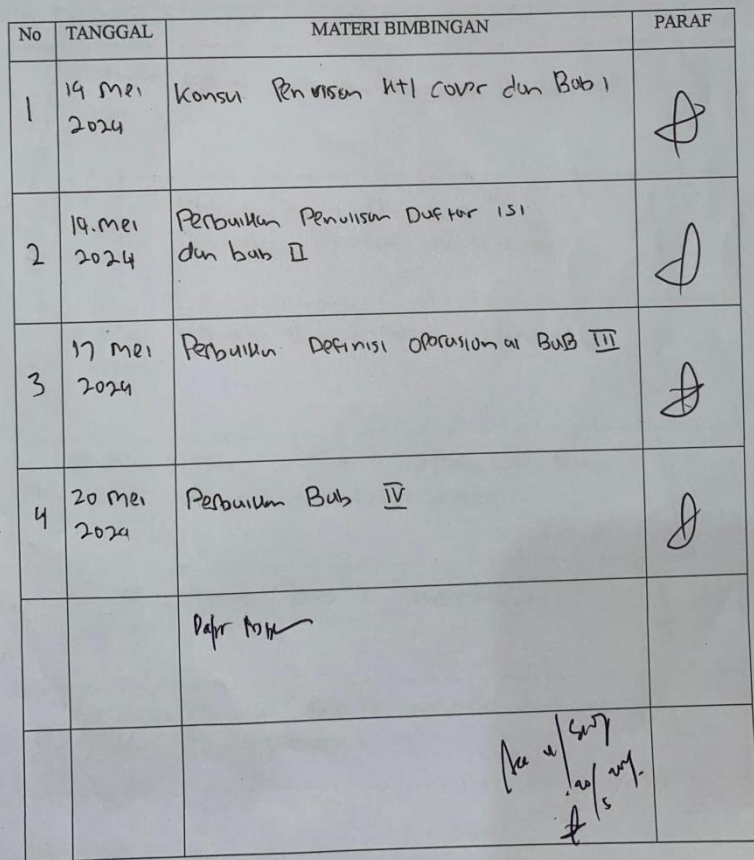 No TANGGAL MATERI BIMBINGAN PARAF
1 14 Mei 2024 Konsul Penulisan hal cover dan Bab 1
2 14. Mei 2024 Perbaikan Penulisan Daftar isi
dan bab II
3 17 Mei 2024 Perbaikan Definisi Operasional BAB III
4 20 Mei 2024 Perbaikan Bab IV